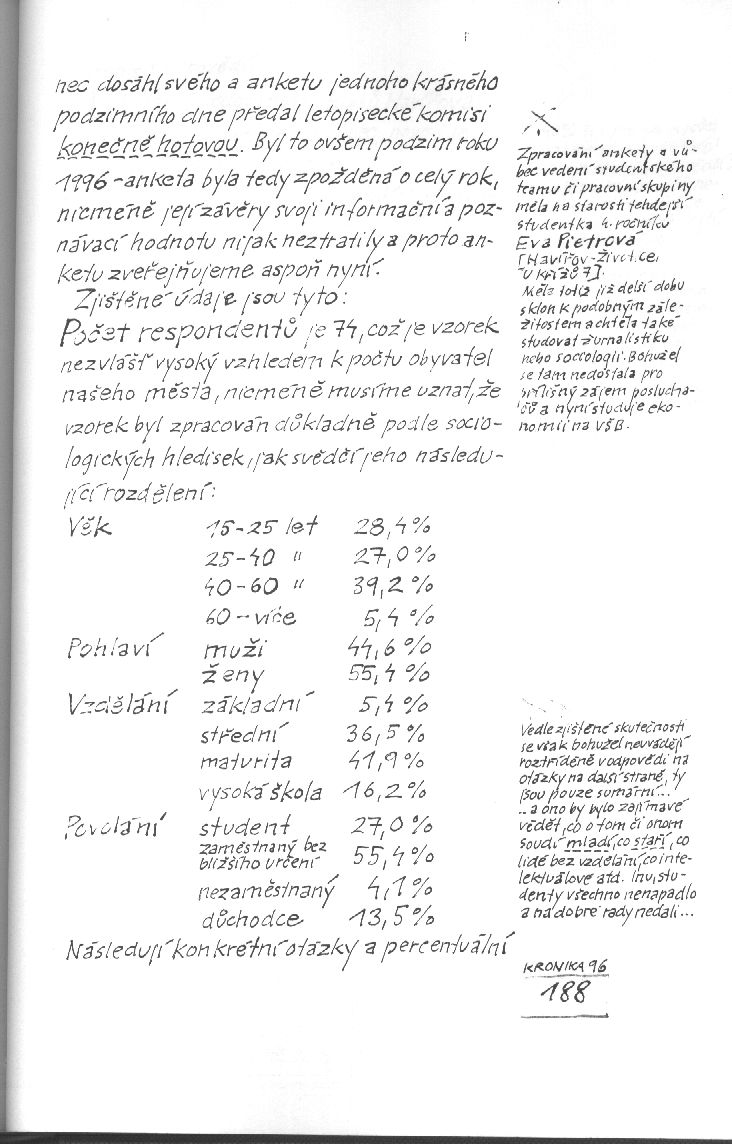 nec dosáhl svého a anketu jednoho krásného
podzimního dne předal letopisecké komisi
konečně hotovou. Byl to ovšem podzim roku
1996 - anketa byla tedy zpožděná o celý rok,
nicméně její závěry svoji informační a poz-
návací hodnotu nijak neztratily a proto an-
ketu zveřejňujeme aspoň nyní.
Zjištěné údaje jsou tyto:
Počet respondentů je 74, což je vzorek
nezvlášť vysoký vzhledem k počtu obyvatel
našeho města, nicméně musíme uznat, že
vzorek byl zpracován důkladně podle socio-
logických hledisek, jak svědčí jeho následu-
jící rozdělení:
Věk 15-25 let 28,4%
25-40 " 27,0%
40-60 " 39,2%
60 - více 5,4%
Pohlaví muži 44,6%
ženy 55,4%
Vzdělání základní 5,4%
střední 36,5%
maturita 41,9%
vysoká škola 16,2%
Povolání student 27,0%
zaměstnaný bez
bližšího určení 55,4%
nezaměstnaný 4,1%
důchodce 13,5%
Následují konkrétní otázky a percentuální
Zpracování ankety a vů-
bec vedení studentského
teamu či pracovní skupiny
měla na starosti tehdejší
studentka 4. ročníku
Eva Pietrová
[Havířov-Životice,
"U kříže 7].
Měla totiž již delší dobu
sklon k podobným zále-
žitostem a chtěla také
studovat žurnalistiku
nebo sociologii. Bohužel
se tam nedostala pro
přílišný zájem poslucha-
čů a nyní studuje eko-
nomii na VŠB.
Vedle zjištěné skutečnosti
se však bohužel neuvádějí
roztříděné v odpovědi na
otázky na další straně, ty
jsou pouze sumární...
.. a ono by bylo zajímavé
vědět, co o tom či onom
soudí mladí, co staří, co
lidé bez vzdělání, co inte-
lektuálové atd. Inu, stu-
denty všechno nenapadlo
a na dobré rady nedali...
KRONIKA 96
188